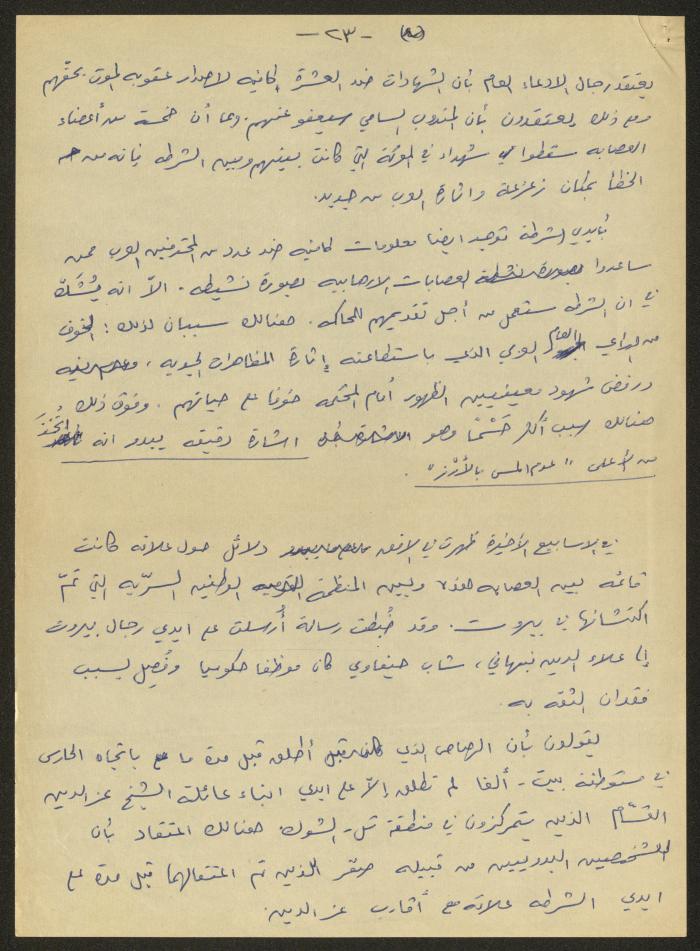 (٨) - ٢٣ -
يعتقد رجال الادعاء العام بأن الشهادات ضد العشرة كافيه لاصدار عقوبه الموت بحقهم
ومع ذلك يعتقدون بأن المندوب السامي سيعفو عنهم. وبما أن خمسة من أعضاء
العصابه سقطوا شهداء في المعركة التي كانت بينهم وبين الشرطه فانه من
الخطأ بمكان زعزعة واثارة العرب من جديد.
بأيدي الشرطة توجد ايضا معلومات كافيه ضد عدد من المحترفين العرب ممن
ساعدوا بصورة نشطة العصابات الارهابيه بصورة نشيطه. الاّ انه يُشَكّ
في ان الشرطه ستعمل من أجل تقديمهم للمحاكمه. هنالك سببان لذلك: الخوف
من الرأي العام العربي الذي باستطاعته إثارة المظاهرات الجديده،
ورفض شهود معينيين الظهور أمام المحكمه خوفا على حياتهم. وفوق ذلك
هنالك سبب أكثر حَسْمًا وهو اشارة دقيقه يبدو انه اتُّخِذَ
من الأعلى "عدم المس بالأرْز".
في الاسابيع الأخيرة ظهرت في الافق دلائل حول علاقه كانت
قائمه بين العصابه هذه وبين المنظمة الوطنيه السرّيه التي تمّ
اكتشافها في بيروت. وقد ضُبطت رسالة أُرسلت على ايدي رجال بيروت
إلى علاء الدين نبهاني، شاب حيفاوي كان موظفا حكوميا وفُصِل بسبب
فقدان الثقه به.
يقولون بأن الرصاص الذي أطلق قبل مدة ما باتجاه الحارس
في مستوطنة بيت - ألفا لم تطلق إلاّ على ايدي ابناء عائلة الشيخ عز الدين
القسّام الذين يتمركزون في منطقة تل - الشوك. هنالك اعتقاد بأن
للشخصين البدويين من قبيله صقر اللذين تم اعتقالهما قبل مدة على
ايدي الشرطه علاقه مع أقارب عز الدين.